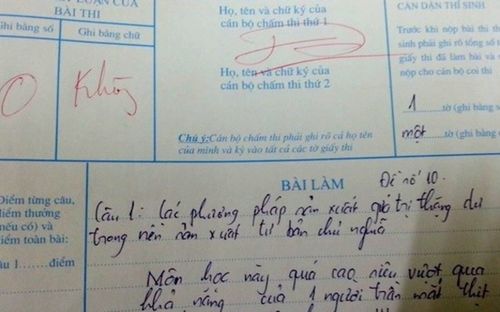 LUẬN CỦA
BÀI THI
Ghi bằng số
Ghi bằng chữ
0
Không
Họ, tên và chữ ký của
cán bộ chấm thi thứ 1
Họ, tên và chữ ký của
cán bộ chấm thi thứ 2
Chú ý: Cán bộ chấm thi phải ghi rõ cả họ tên
của mình và ký vào tất cả các tờ giấy thi
CĂN DẶN THÍ SINH
Trước khi nộp bài thi thí
sinh phải ghi rõ tổng số tờ
giấy thi đã làm bài và
nộp cho cán bộ coi thi
1
tờ (ghi bằng
một
tờ (ghi bằng
BÀI LÀM
Đề số 10.
Điểm từng câu,
điểm thưởng
(nếu có) và
điểm toàn bài:
Câu 1.......điểm
Câu 1: Các phương pháp sản xuất giá trị thặng dư
trong nền sản xuất tư bản chủ nghĩa
Môn học này quá cao siêu vượt qua
khả năng của 1 người trần mắt thịt